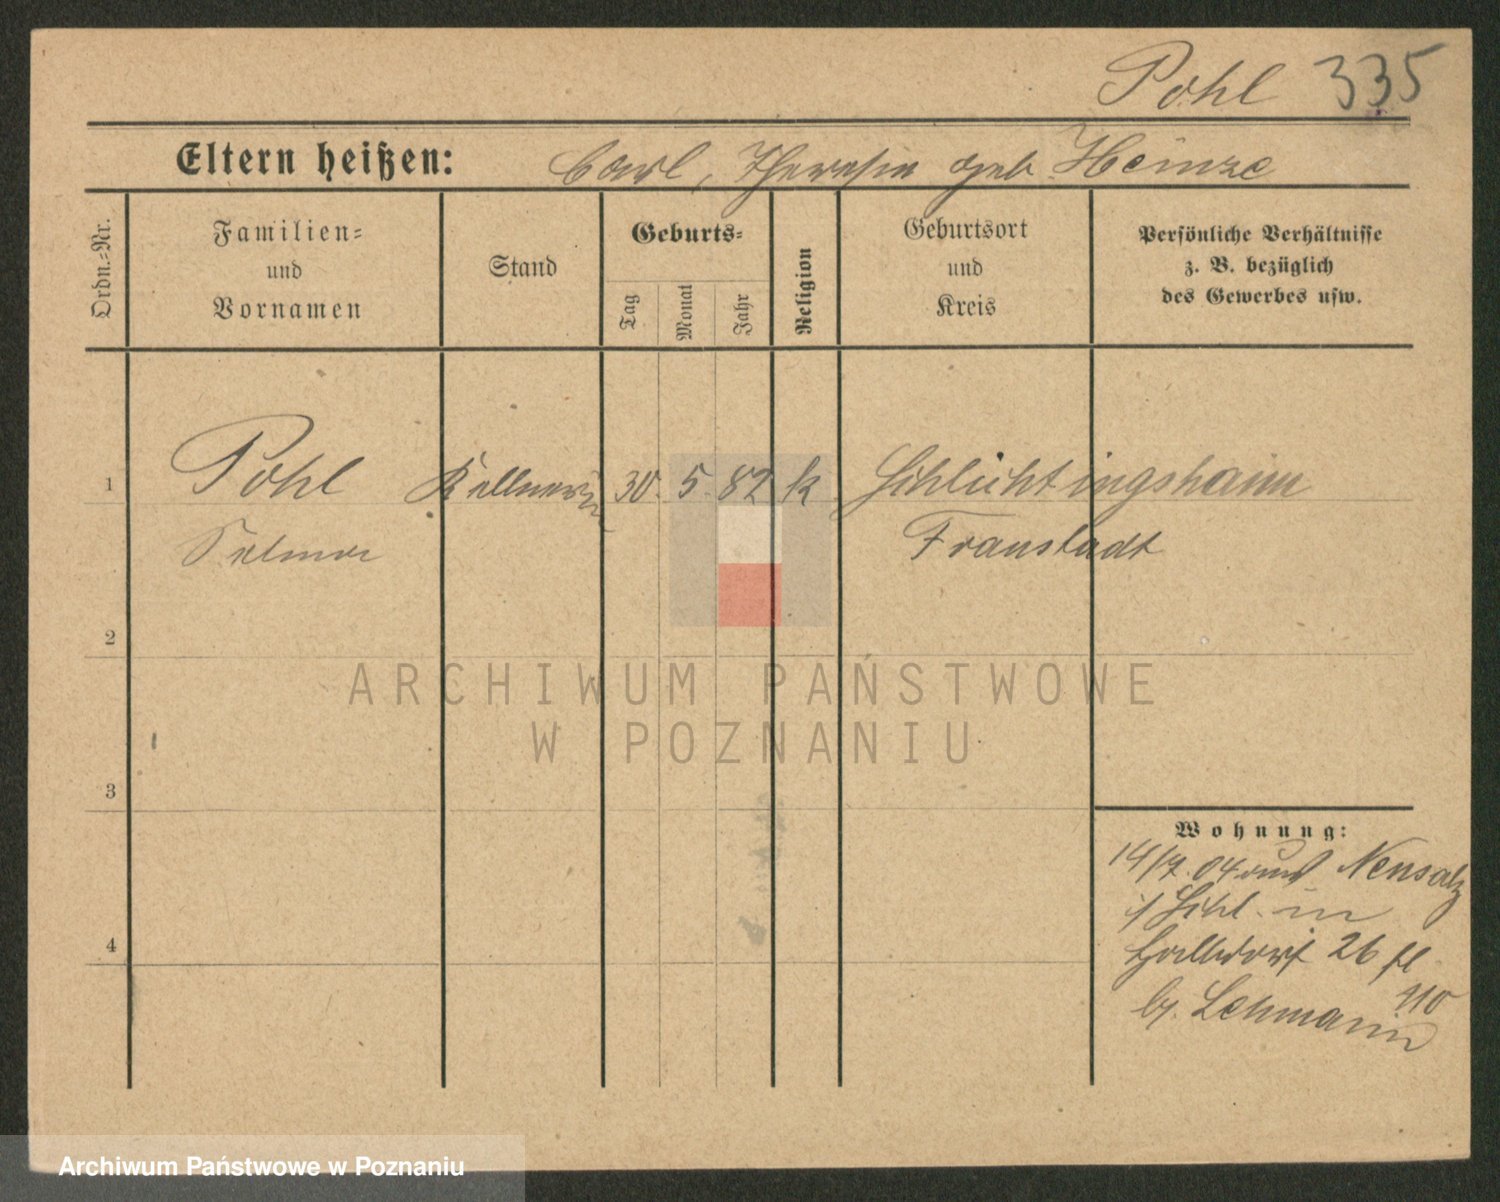 Pohl 335
Eltern heißen: Carl, Theresia geb Heinze
Ordn.-Nr.
Familien-
und
Vornamen
Stand
Geburts-
Tag
Monat
Jahr
Religion
Geburtsort
und
Kreis
Persönliche Verhältnisse
z. B. bezüglich
des Gewerbes usw.
1 Pohl Kellnerin 30. 5. 82 k Schlichtingsheim
Selma Fraustadt
2
ARCHIWUM PAŃSTWOWE
W POZNANIU
3
Wohnung:
14/7. 04 Neusalz
in
26
b. Lehmann
4
Archiwum Państwowe w Poznaniu